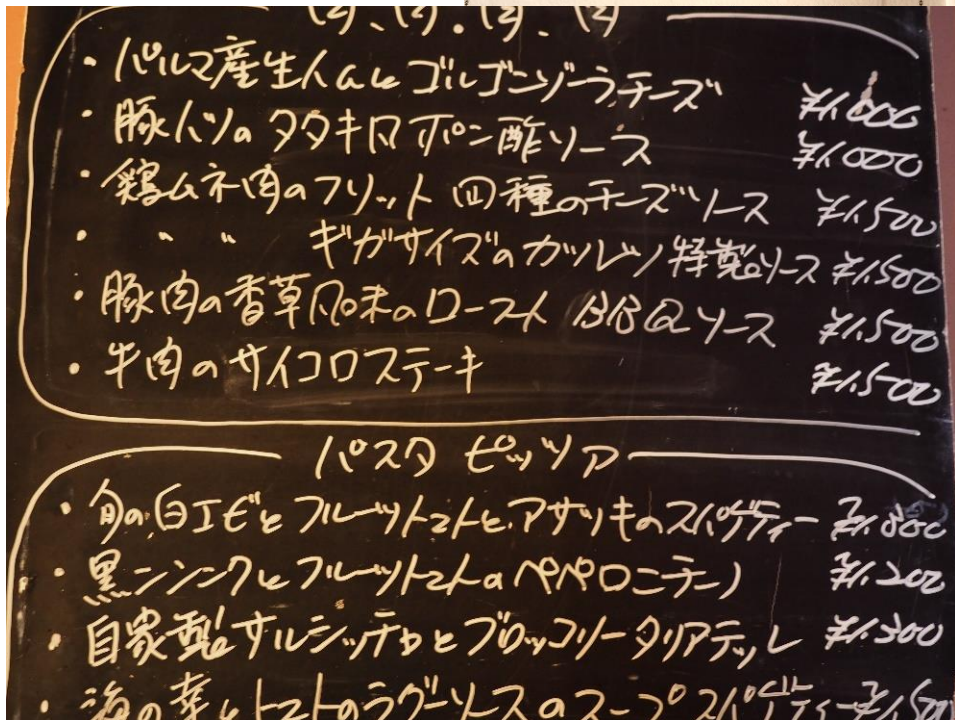 ・パルマ産生ハムとゴルゴンゾーラチーズ ¥1,000
・豚ハツのタタキ風ポン酢ソース ¥1,000
・鶏ムネ肉のフリット 四種のチーズソース ¥1,500
・〃 〃 ギガサイズのカツレツ 特製ソース ¥1,500
・豚肉の香草風味のロースト BBQソース ¥1,500
・牛肉のサイコロステーキ ¥1,500
パスタ ピッツァ
・旬の白エビとフルーツトマトとアサツキのスパゲティー
・黒ニンニクとフルーツトマトのペペロンチーノ ¥1,200
・自家製サルシッチャとブロッコリータリアテッレ ¥1,300
・海の幸とトマトのラグーソースのスープスパゲティー